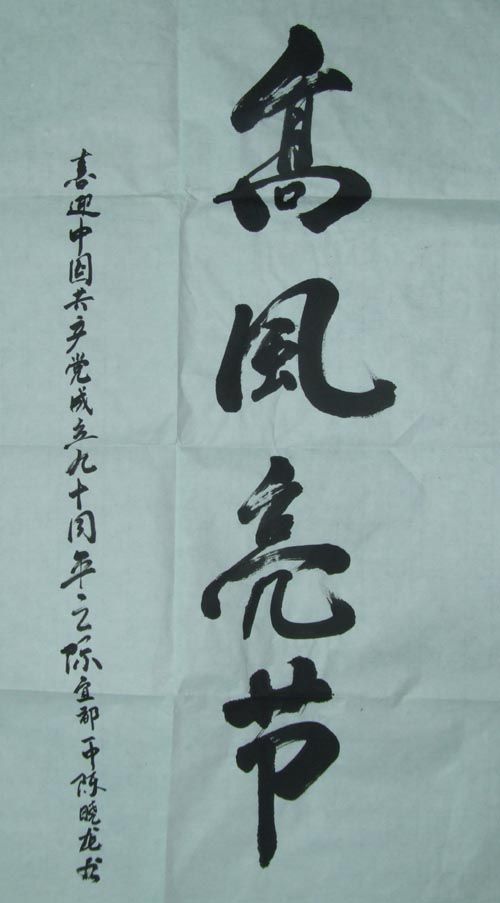 高風亮节
喜迎中国共产党成立九十周年之际宜都市陈晓龙书